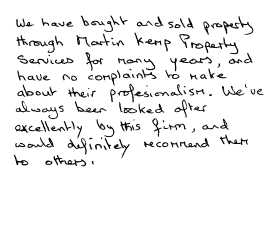 We have bought and sold property
through Martin Kemp Property
Services for many years, and
have no complaints to make
about their profesionalism. We've
always been looked after
excellently by this firm, and
would definitely recommend them
to others.